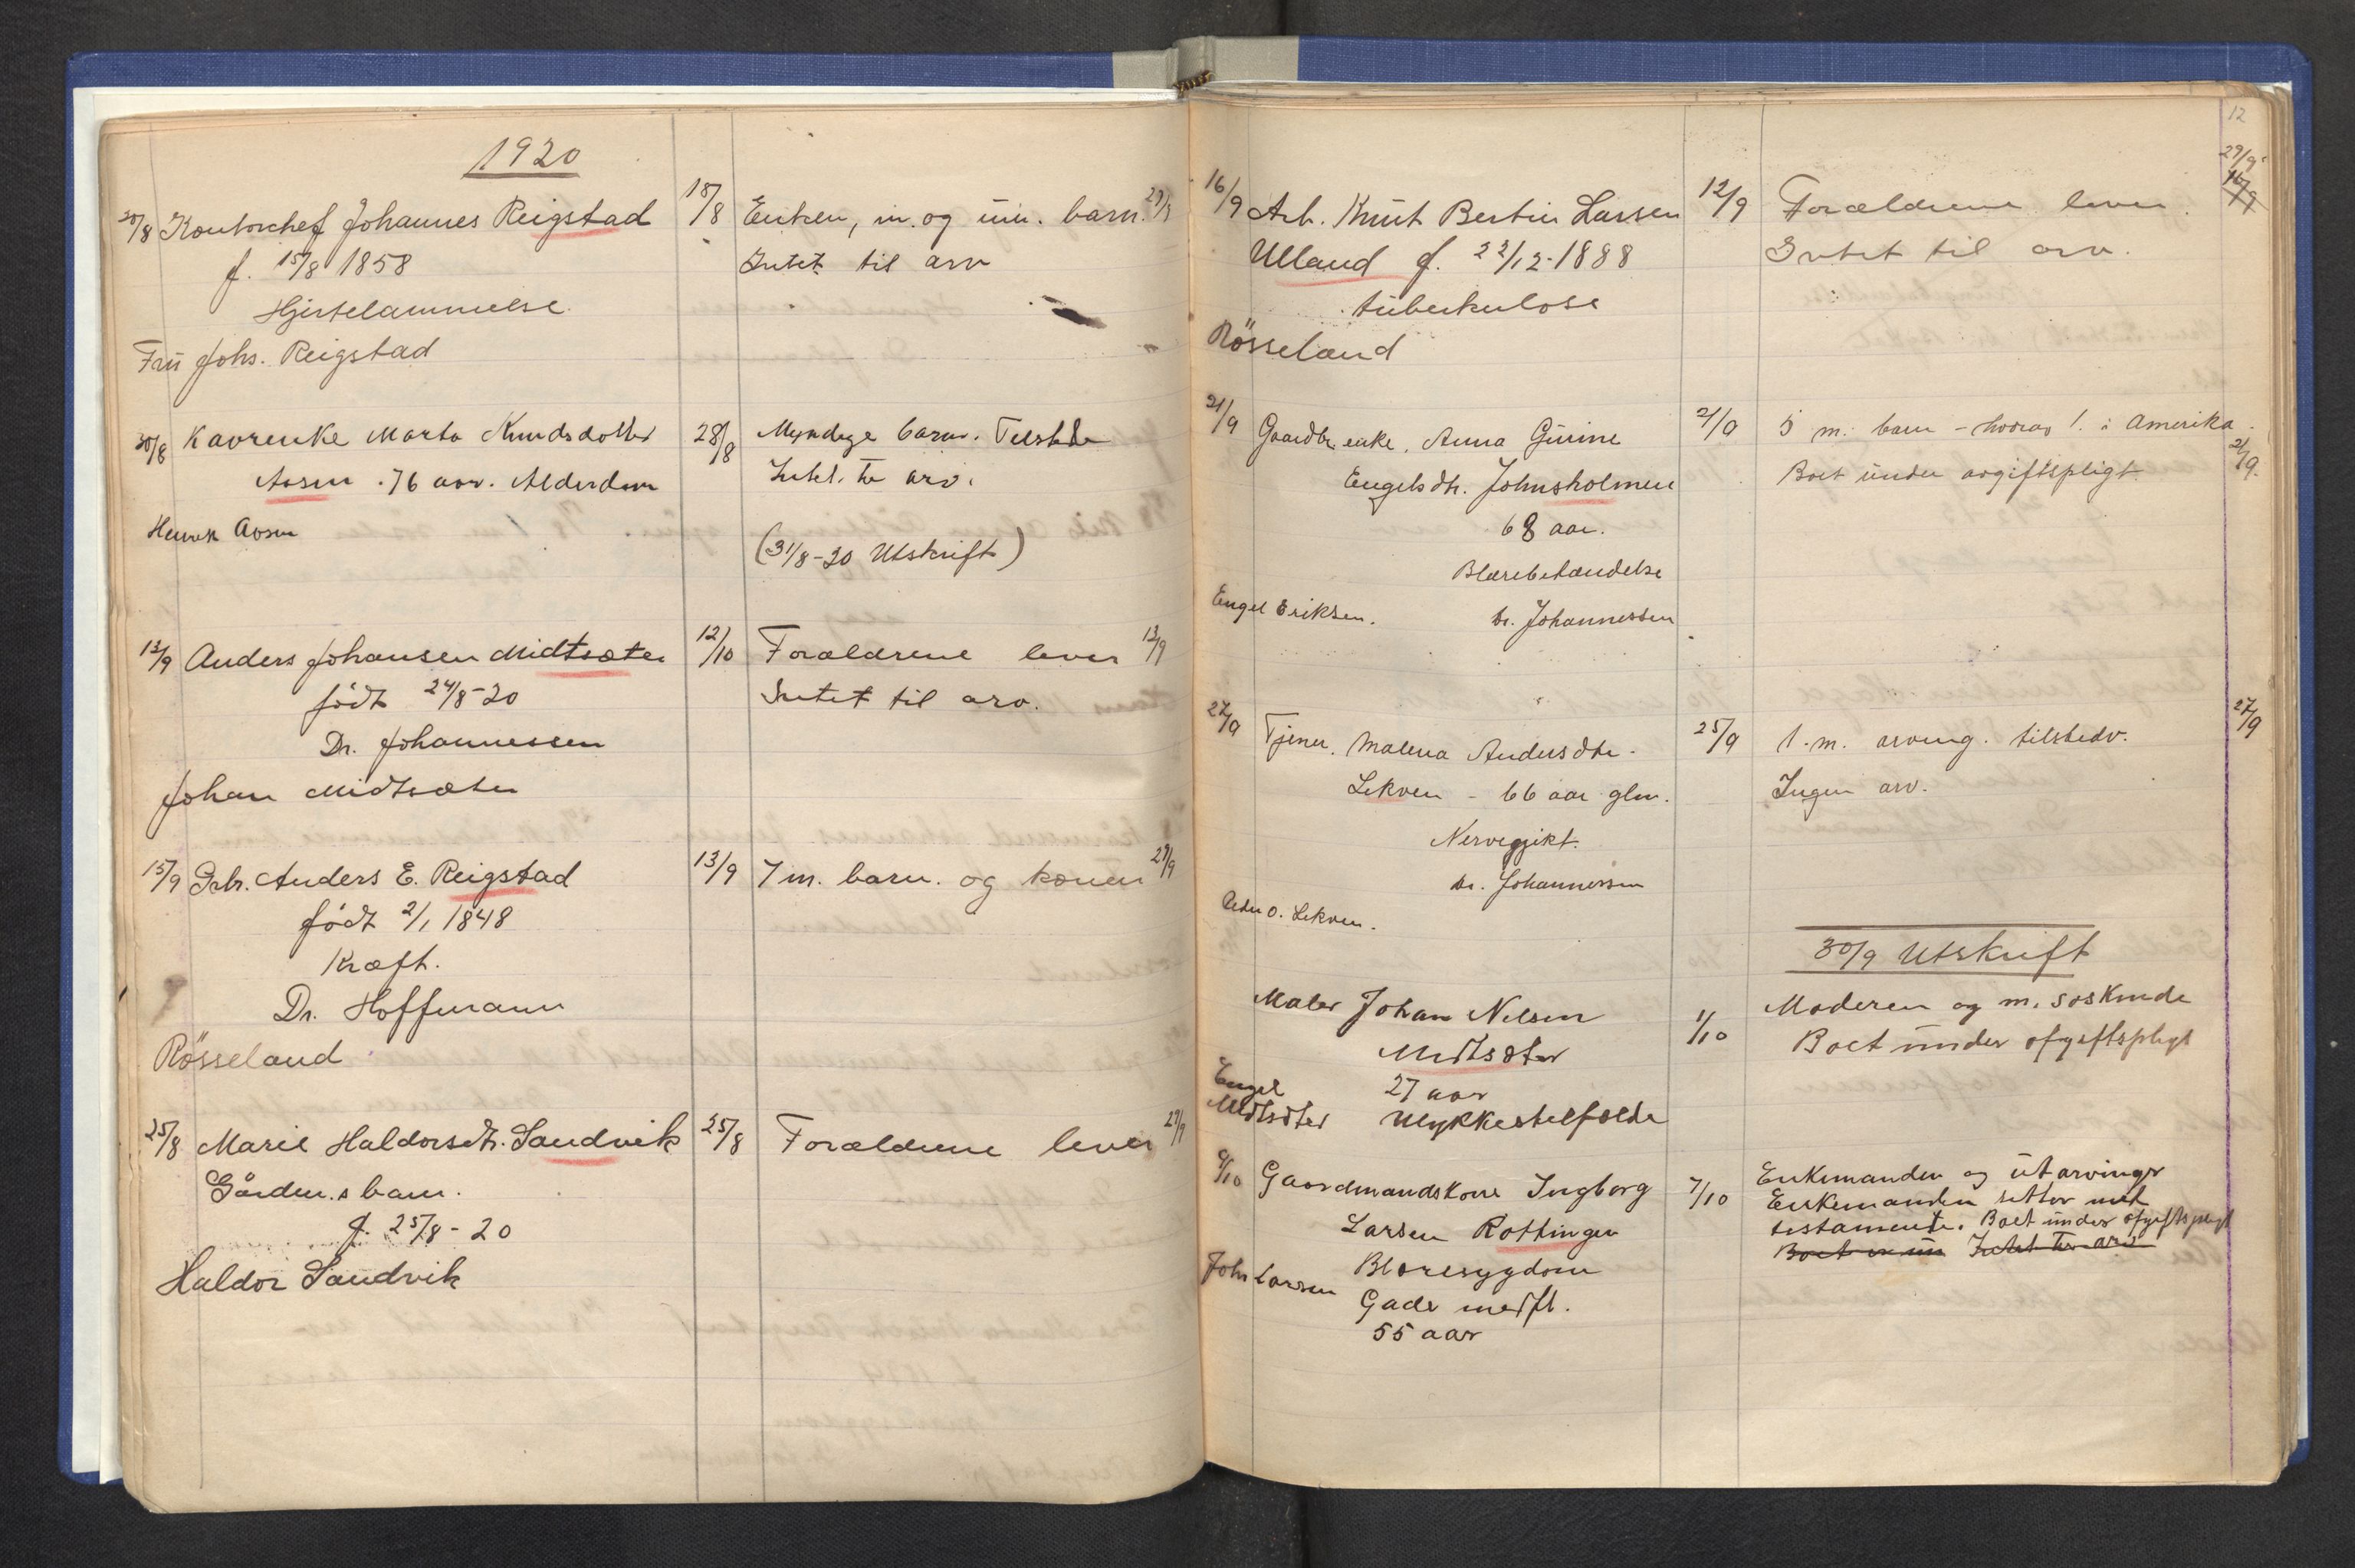 1920
20/8 Kontorchef Johannes Reigstad 18/8 Enken, m. og um. barn. 29/9
f. 15/8 1858 Intet til arv
Hjertelammelse.
Fru Johs. Reigstad
30/8 Kaarenke Marta Knudsdotter 28/8 Myndige barn. Tilstede
Aasen . 76 aar. Alderdom Intet til arv.
Henrik Aasen
(31/8-20 Utskrift)
13/9 Anders Johansen Midtsæter 12/10 Forældrene lever 13/9
födt 24/8-20 Intet til arv.
Dr. Johannessen
Johan Midtsæter
15/9 Grbr. Anders E. Reigstad 13/9 7 m. barn. og konen 29/9
födt 2/1 1848
Kræft.
Dr. Hoffmann
Rösseland
25/8 Marie Haldorsdtr. Sandvik 25/8 Forældrene lever 29/9
Gårdm.s barn.
f. 25/8 - 20
Haldor Sandvik
12
29/9
16/9 Arb. Knut Bertin Larsen 12/9 Forældrene lever. 16/9
Ulland f. 22/12-1888 Intet til arv.
tuberkulose
Rösseland
21/9 Gaardbr.enke. Anna Gurine 21/9 5 m. barn - hvorav 1. i Amerika.
Engelsdtr. Johnsholmen Boet under avgiftspligt. 21/9.
68 aar.
Blærebetændelse
Engel Eriksen. Dr. Johannessen
27/9 Tjener. Malena Andersdtr. 25/9 1. m. arving. tilstede. 27/9
Lekven - 66 aar glm. Ingen arv.
Nervegjikt.
Dr. Johannessen
O. Lekven.
30/9 Utskrift
Maler Johan Nilsen 1/10 Moderen og m. söskende
Midtsæter Boet under afgiftspligt
Engel 27 aar
Midtsæter Ulykkestilfælde
9/10 Gaardmandskone Ingborg 7/10 Enkemanden og utarvinger
Larsen Røttingen Enkemanden sitter med
testamente. Boet under afgiftspligt
Blæresygdom Boet er un Intet til arv
John Larsen Gade medfl.
55 aar